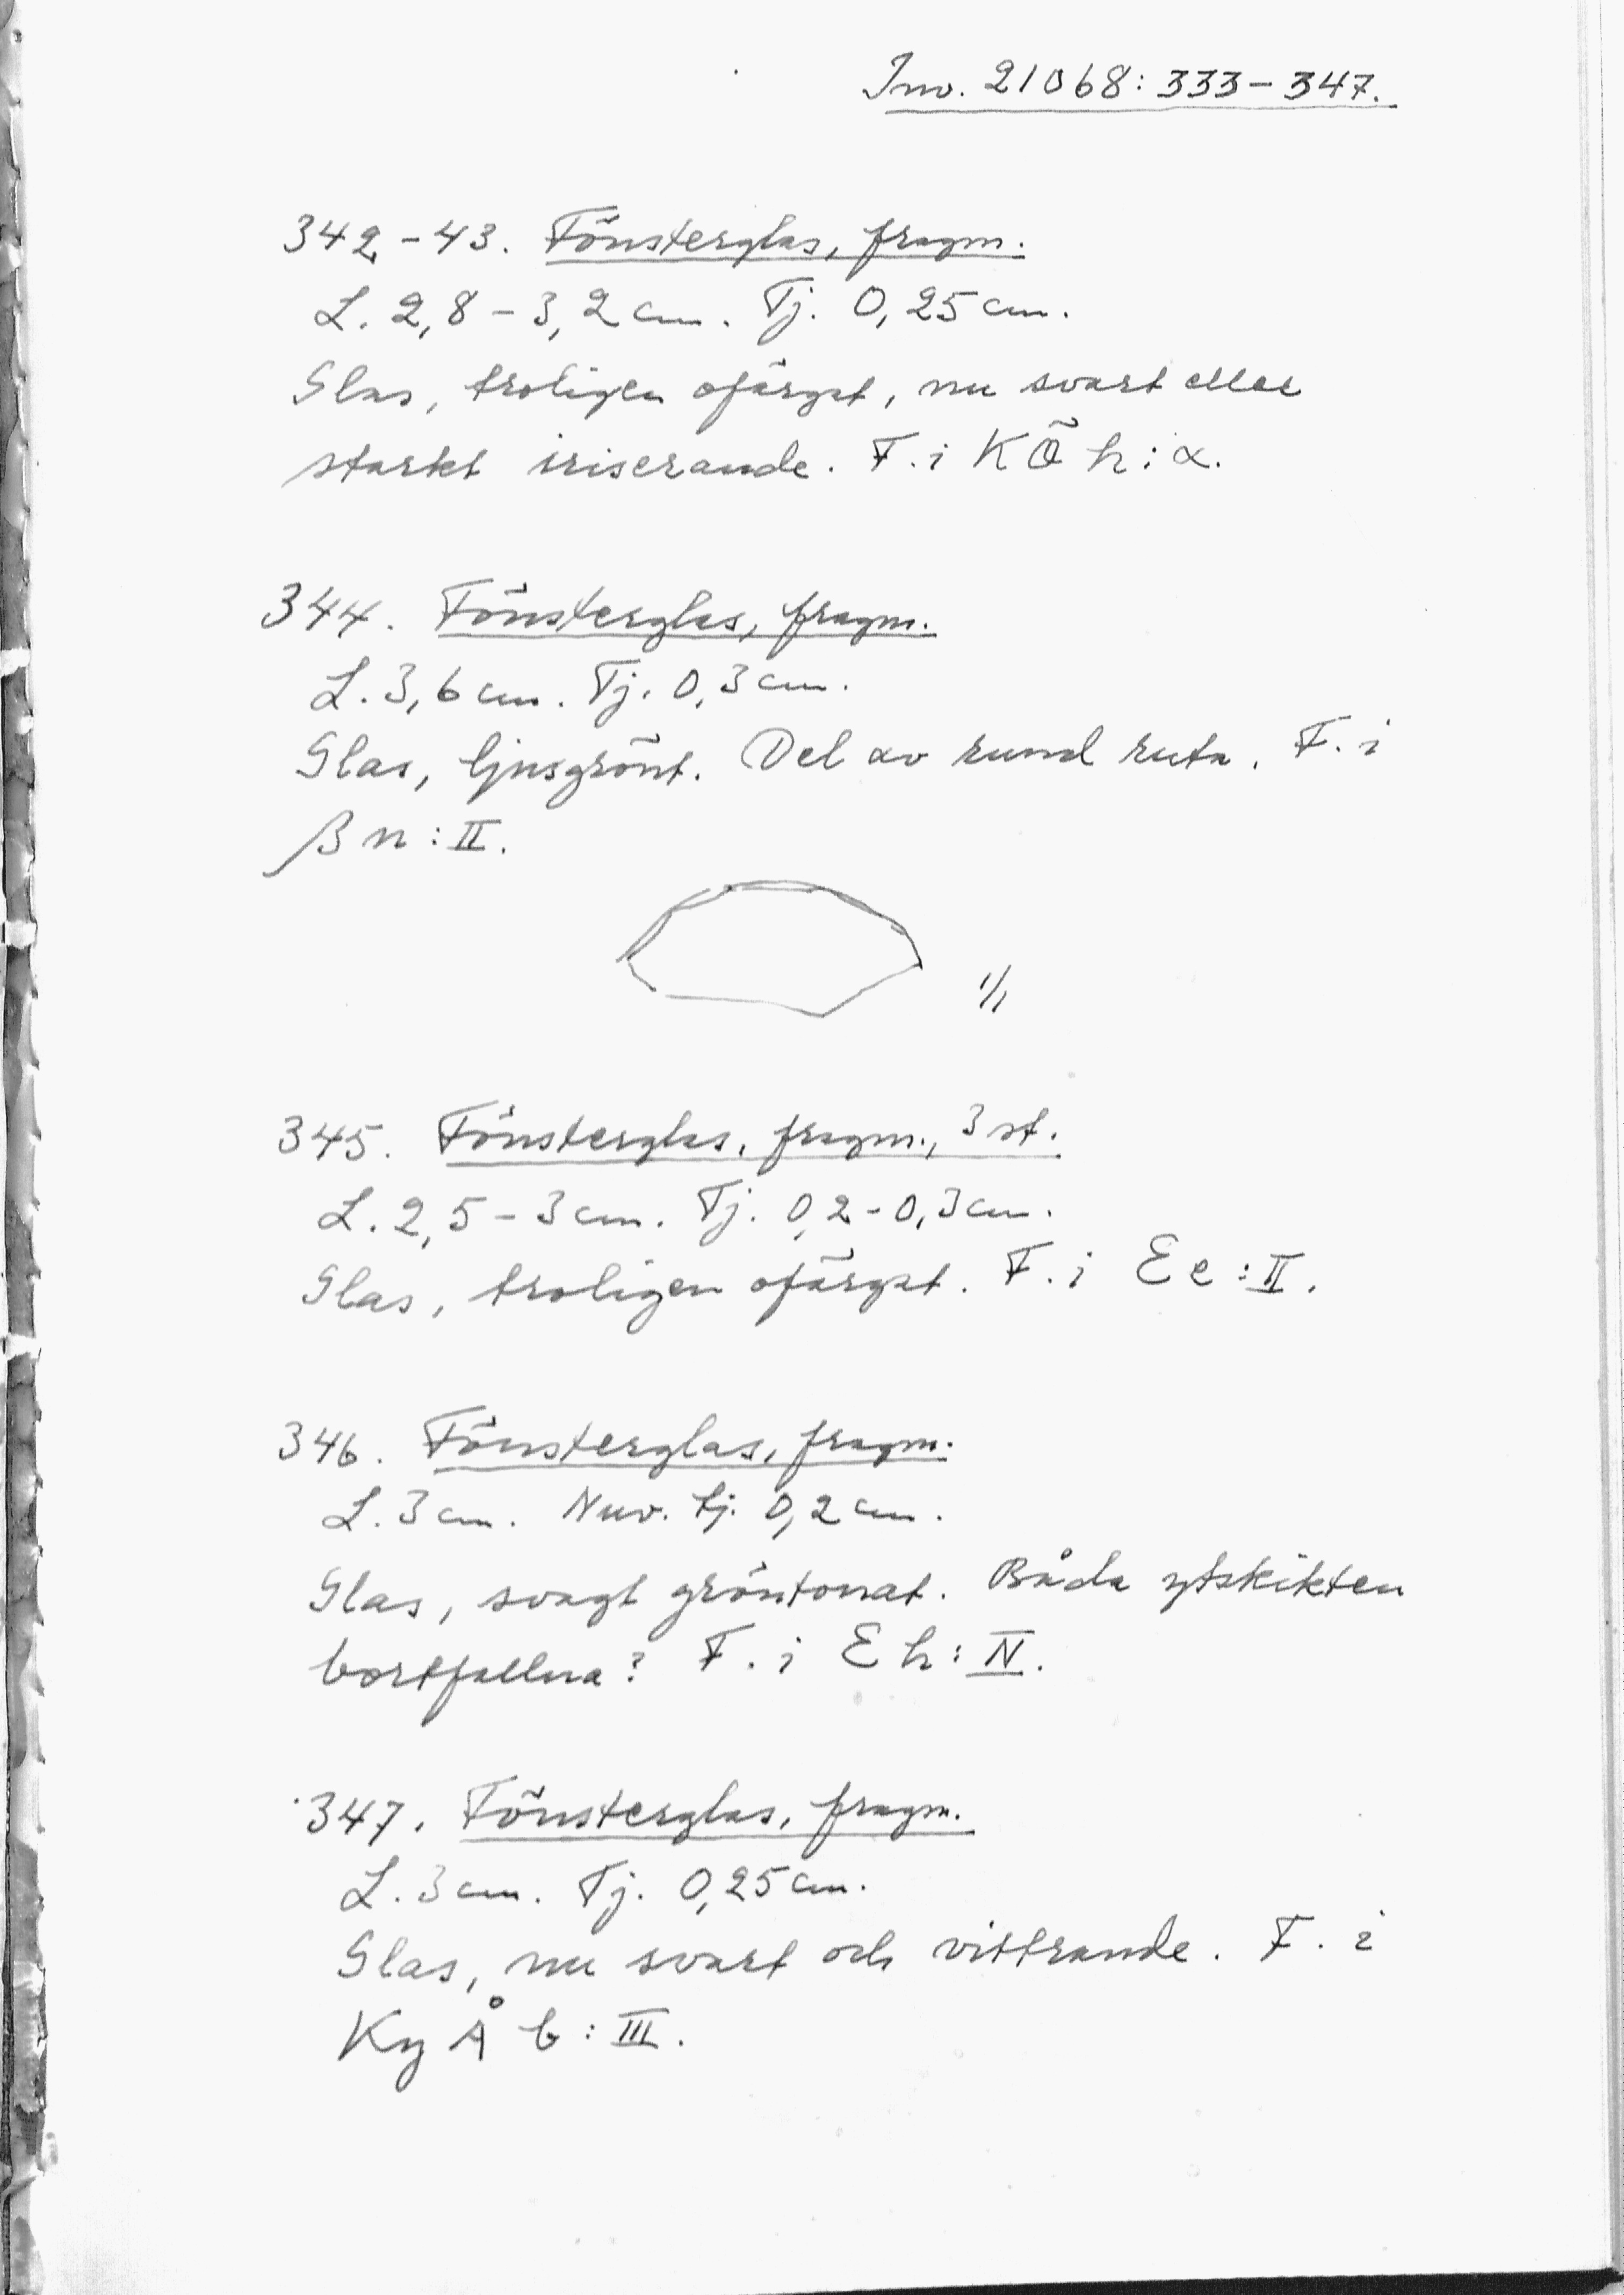 Inv. 21068: 333-347.
342-43. Fönsterglas, fragm.
L. 2,8-3,2 cm. Tj. 0,25 cm.
Glas, troligen ofärgat, nu svart eller
starkt iriserande. F. i KÖ h:α.
344. Fönsterglas, fragm.
L. 3,6 cm. Tj. 0,3 cm.
Glas, ljusgrönt. Del av rund ruta. F. i
β n: II.
1/1
345. Fönsterglas, fragm., 3 st.
L. 2,5-3 cm. Tj. 0,2-0,3 cm.
Glas, troligen ofärgat. F. i E e: II.
346. Fönsterglas, fragm.
L. 3 cm. Nuv. tj. 0,2 cm.
Glas, svagt gröntonat. Båda ytskikten
bortfallna? F. i E h: IV.
347. Fönsterglas, fragm.
L. 3 cm. Tj. 0,25 cm.
Glas, nu svart och vittrande. F. i
Ky Å b: III.